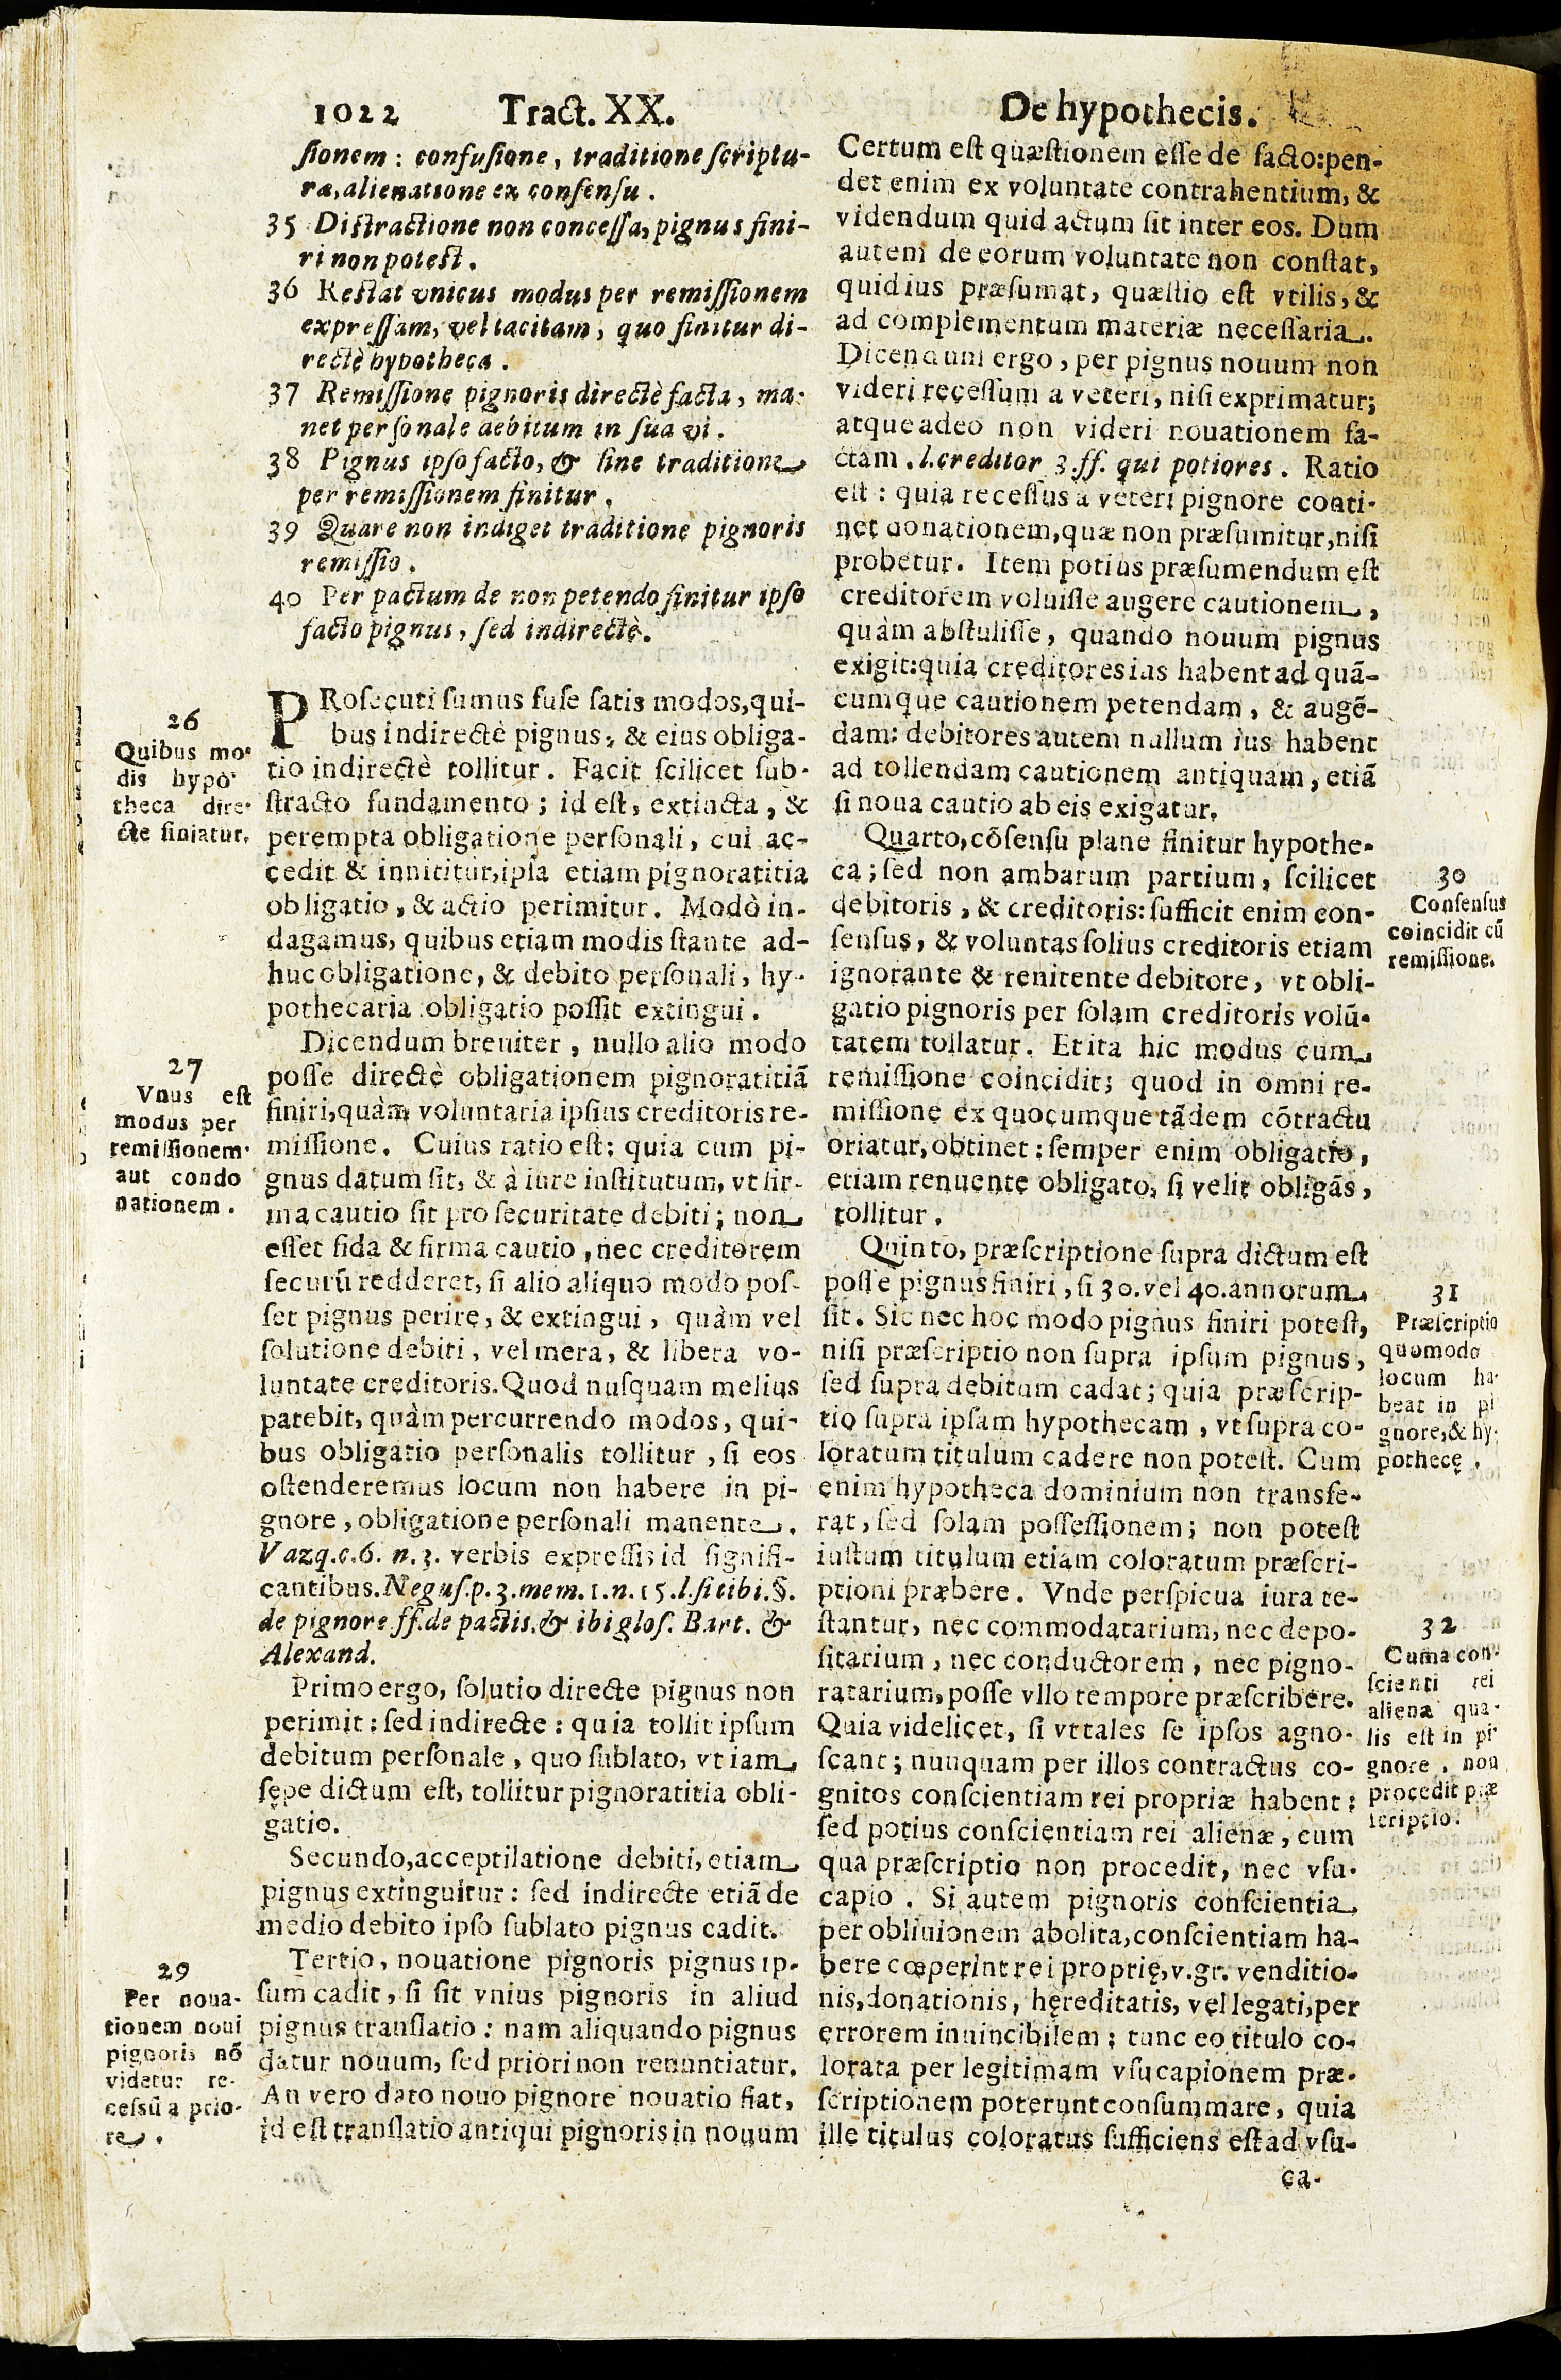 1022 Tract. XX. De hypothecis.
sionem: confusione, traditione scriptu-
ræ, alienatione ex consensu.
35 Distractione non concessa, pignus fini-
ri non potest.
36 Restat vnicus modus per remissionem
expressam, vel tacitam, quo finitur di-
rectè hypotheca.
37 Remissione pignoris directè facta, ma-
net personale debitum in sua vi.
38 Pignus ipso facto, & sine traditione
per remissionem finitur.
39 Quare non indiget traditione pignoris
remissio.
40 Per pactum de non petendo finitur ipso
facto pignus, sed indirectè.
26
Quibus mo-
dis hypo-
theca dire-
cte finiatur.
PRosecuti sumus fuse satis modos, qui-
bus indirectè pignus, & eius obliga-
tio indirectè tollitur. Facit scilicet sub-
stracto fundamento; id est, extincta, &
perempta obligatione personali, cui ac-
cedit & innititur, ipsa etiam pignoratitia
obligatio, & actio perimitur. Modò in-
dagamus, quibus etiam modis stante ad-
huc obligatione, & debito personali, hy-
pothecaria obligatio possit extingui.
27
Vnus est
modus per
remissionem
aut condo
nationem.
Dicendum breuiter, nullo alio modo
posse directè obligationem pignoratitiã
finiri, quàm voluntaria ipsius creditoris re-
missione. Cuius ratio est: quia cum pi-
gnus datum sit, & à iure institutum, vt fir-
ma cautio sit pro securitate debiti; non
esset fida & firma cautio, nec creditorem
securũ redderet, si alio aliquo modo pos-
set pignus perire, & extingui, quàm vel
solutione debiti, vel mera, & libera vo-
luntate creditoris. Quod nusquam melius
patebit, quàm percurrendo modos, qui-
bus obligatio personalis tollitur, si eos
ostenderemus locum non habere in pi-
gnore, obligatione personali manente.
Vazq. c. 6. n. 3. verbis expressis id signifi-
cantibus. Negus. p. 3. mem. 1. n. 15. l. si tibi. §.
de pignore ff. de pactis. & ibi glos. Bart. &
Alexand.
Primo ergo, solutio directe pignus non
perimit: sed indirecte: quia tollit ipsum
debitum personale, quo sublato, vt iam
sępe dictum est, tollitur pignoratitia obli-
gatio.
Secundo, acceptilatione debiti, etiam
pignus extinguitur: sed indirecte etiã de
medio debito ipso sublato pignus cadit.
29
Per noua-
tionem noui
pignoris nõ
videtur re-
cessũ a prio-
re.
Tertio, nouatione pignoris pignus ip-
sum cadit, si sit vnius pignoris in aliud
pignus translatio: nam aliquando pignus
datur nouum, sed priori non renuntiatur.
An vero dato nouo pignore nouatio fiat,
id est translatio antiqui pignoris in nouum
Certum est quæstionem esse de facto: pen-
det enim ex voluntate contrahentium, &
videndum quid actum sit inter eos. Dum
autem de eorum voluntate non constat,
quid ius præsumat, quæstio est vtilis, &
ad complementum materiæ necessaria.
Dicendum ergo, per pignus nouum non
videri recessum a veteri, nisi exprimatur;
atque adeo non videri nouationem fa-
ctam. l. creditor 3. ff. qui potiores. Ratio
est: quia recessus a veteri pignore conti-
net donationem, quæ non præsumitur, nisi
probetur. Item potius præsumendum est
creditorem voluisse augere cautionem,
quàm abstulisse, quando nouum pignus
exigit: quia creditores ius habent ad quã-
cumque cautionem petendam, & augẽ-
dam: debitores autem nullum ius habent
ad tollendam cautionem antiquam, etiã
si noua cautio ab eis exigatur.
30
Consensus
coincidit cũ
remissione.
Quarto, cõsensu plane finitur hypothe-
ca; sed non ambarum partium, scilicet
debitoris, & creditoris: sufficit enim con-
sensus, & voluntas solius creditoris etiam
ignorante & renitente debitore, vt obli-
gatio pignoris per solam creditoris volũ-
tatem tollatur. Et ita hic modus cum
remissione coincidit; quod in omni re-
missione ex quocumque tãdem cõtractu
oriatur, obtinet: semper enim obligatio,
etiam renuente obligato, si velit obligãs,
tollitur.
31
Præscriptio
quomodo
locum ha-
beat in pi
gnore, & hy-
pothecę.
Quinto, præscriptione supra dictum est
posse pignus finiri, si 30. vel 40. annorum
sit. Sic nec hoc modo pignus finiri potest,
nisi præscriptio non supra ipsum pignus,
sed supra debitum cadat; quia præscrip-
tio supra ipsam hypothecam, vt supra co-
loratum titulum cadere non potest. Cum
enim hypotheca dominium non transfe-
rat, sed solam possessionem; non potest
iustum titulum etiam coloratum præscri-
ptioni præbere. Vnde perspicua iura te-
stantur, nec commodatarium, nec depo-
sitarium, nec conductorem, nec pigno-
ratarium, posse vllo tempore præscribere.
32
Cum a con-
scienti rei
aliena qua-
lis est in pi-
gnore, non
procedit præ
scriptio.
Quia videlicet, si vt tales se ipsos agno-
scant; nunquam per illos contractus co-
gnitos conscientiam rei propriæ habent;
sed potius conscientiam rei alienæ, cum
qua præscriptio non procedit, nec vsu-
capio. Si autem pignoris conscientia
per obliuionem abolita, conscientiam ha-
bere cœperint rei proprię, v. gr. venditio-
nis, donationis, hęreditatis, vel legati, per
errorem inuincibilem; tunc eo titulo co-
lorata per legitimam vsucapionem præ-
scriptionem poterunt consummare, quia
ille titulus coloratus sufficiens est ad vsu-
ca-